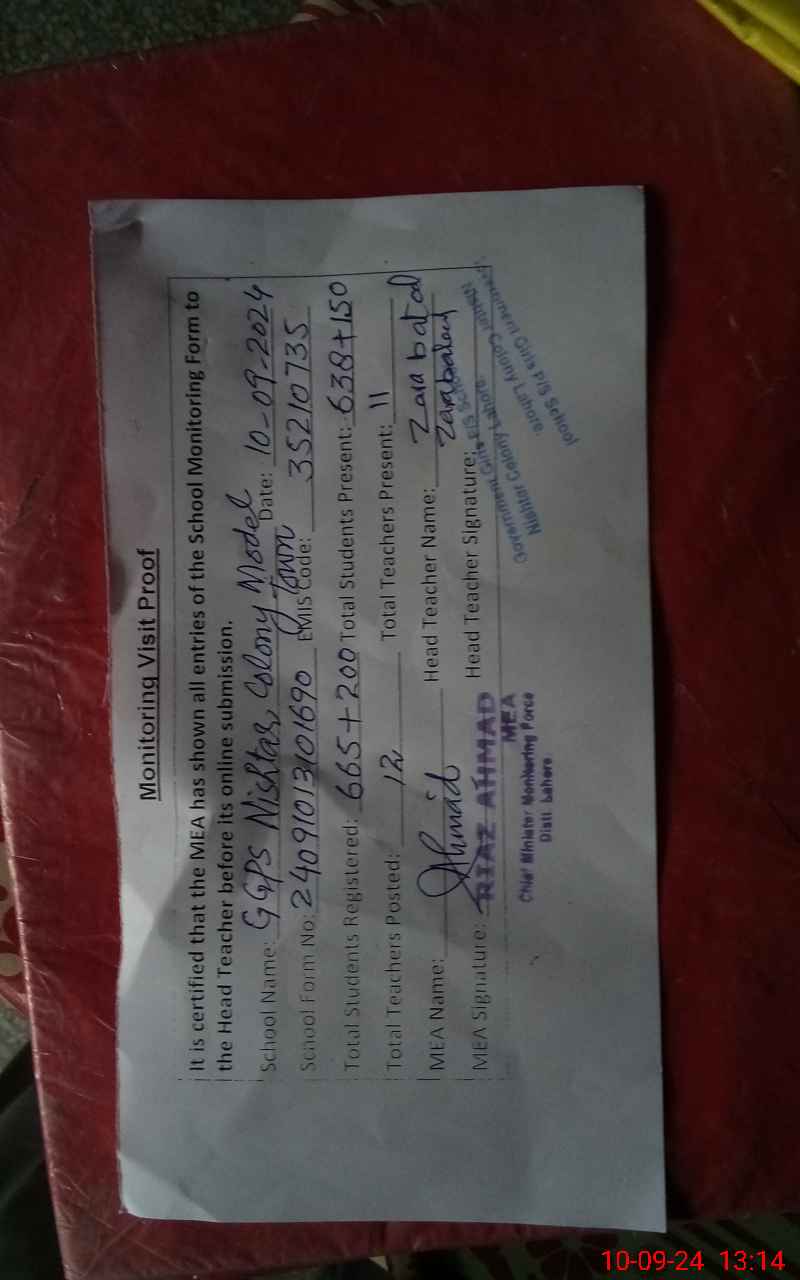 Monitoring Visit Proof
It is certified that the MEA has shown all entries of the School Monitoring Form to
the Head Teacher before its online submission.
School Name: GGPS Nishtar Colony Model Town Date: 10-09-2024
School Form No: 2409101310 1690 EMIS Code: 35210735
Total Students Registered: 665+200 Total Students Present: 638+150
Total Teachers Posted: 12 Total Teachers Present: 11
MEA Name: Ahmad Head Teacher Name: Zara batool
MEA Signature: Head Teacher Signature:
RIAZ AHMAD
MEA
Chief Minister Monitoring Force
Distt. Lahore
Nishtar Colony Lahore
10-09-24 13:14